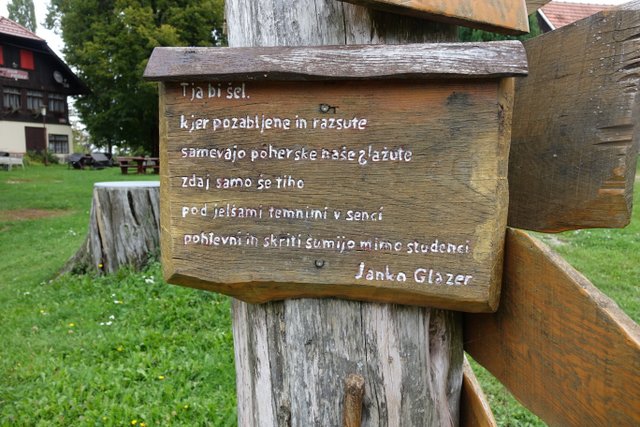 Tja bi šel.
kjer pozabljene in razsute
samevajo pohorske naše glažute
zdaj samo še tiho
pod jelšami temnimi v senci
pohlevni in skriti šumijo mimo studenci
Janko Glazer